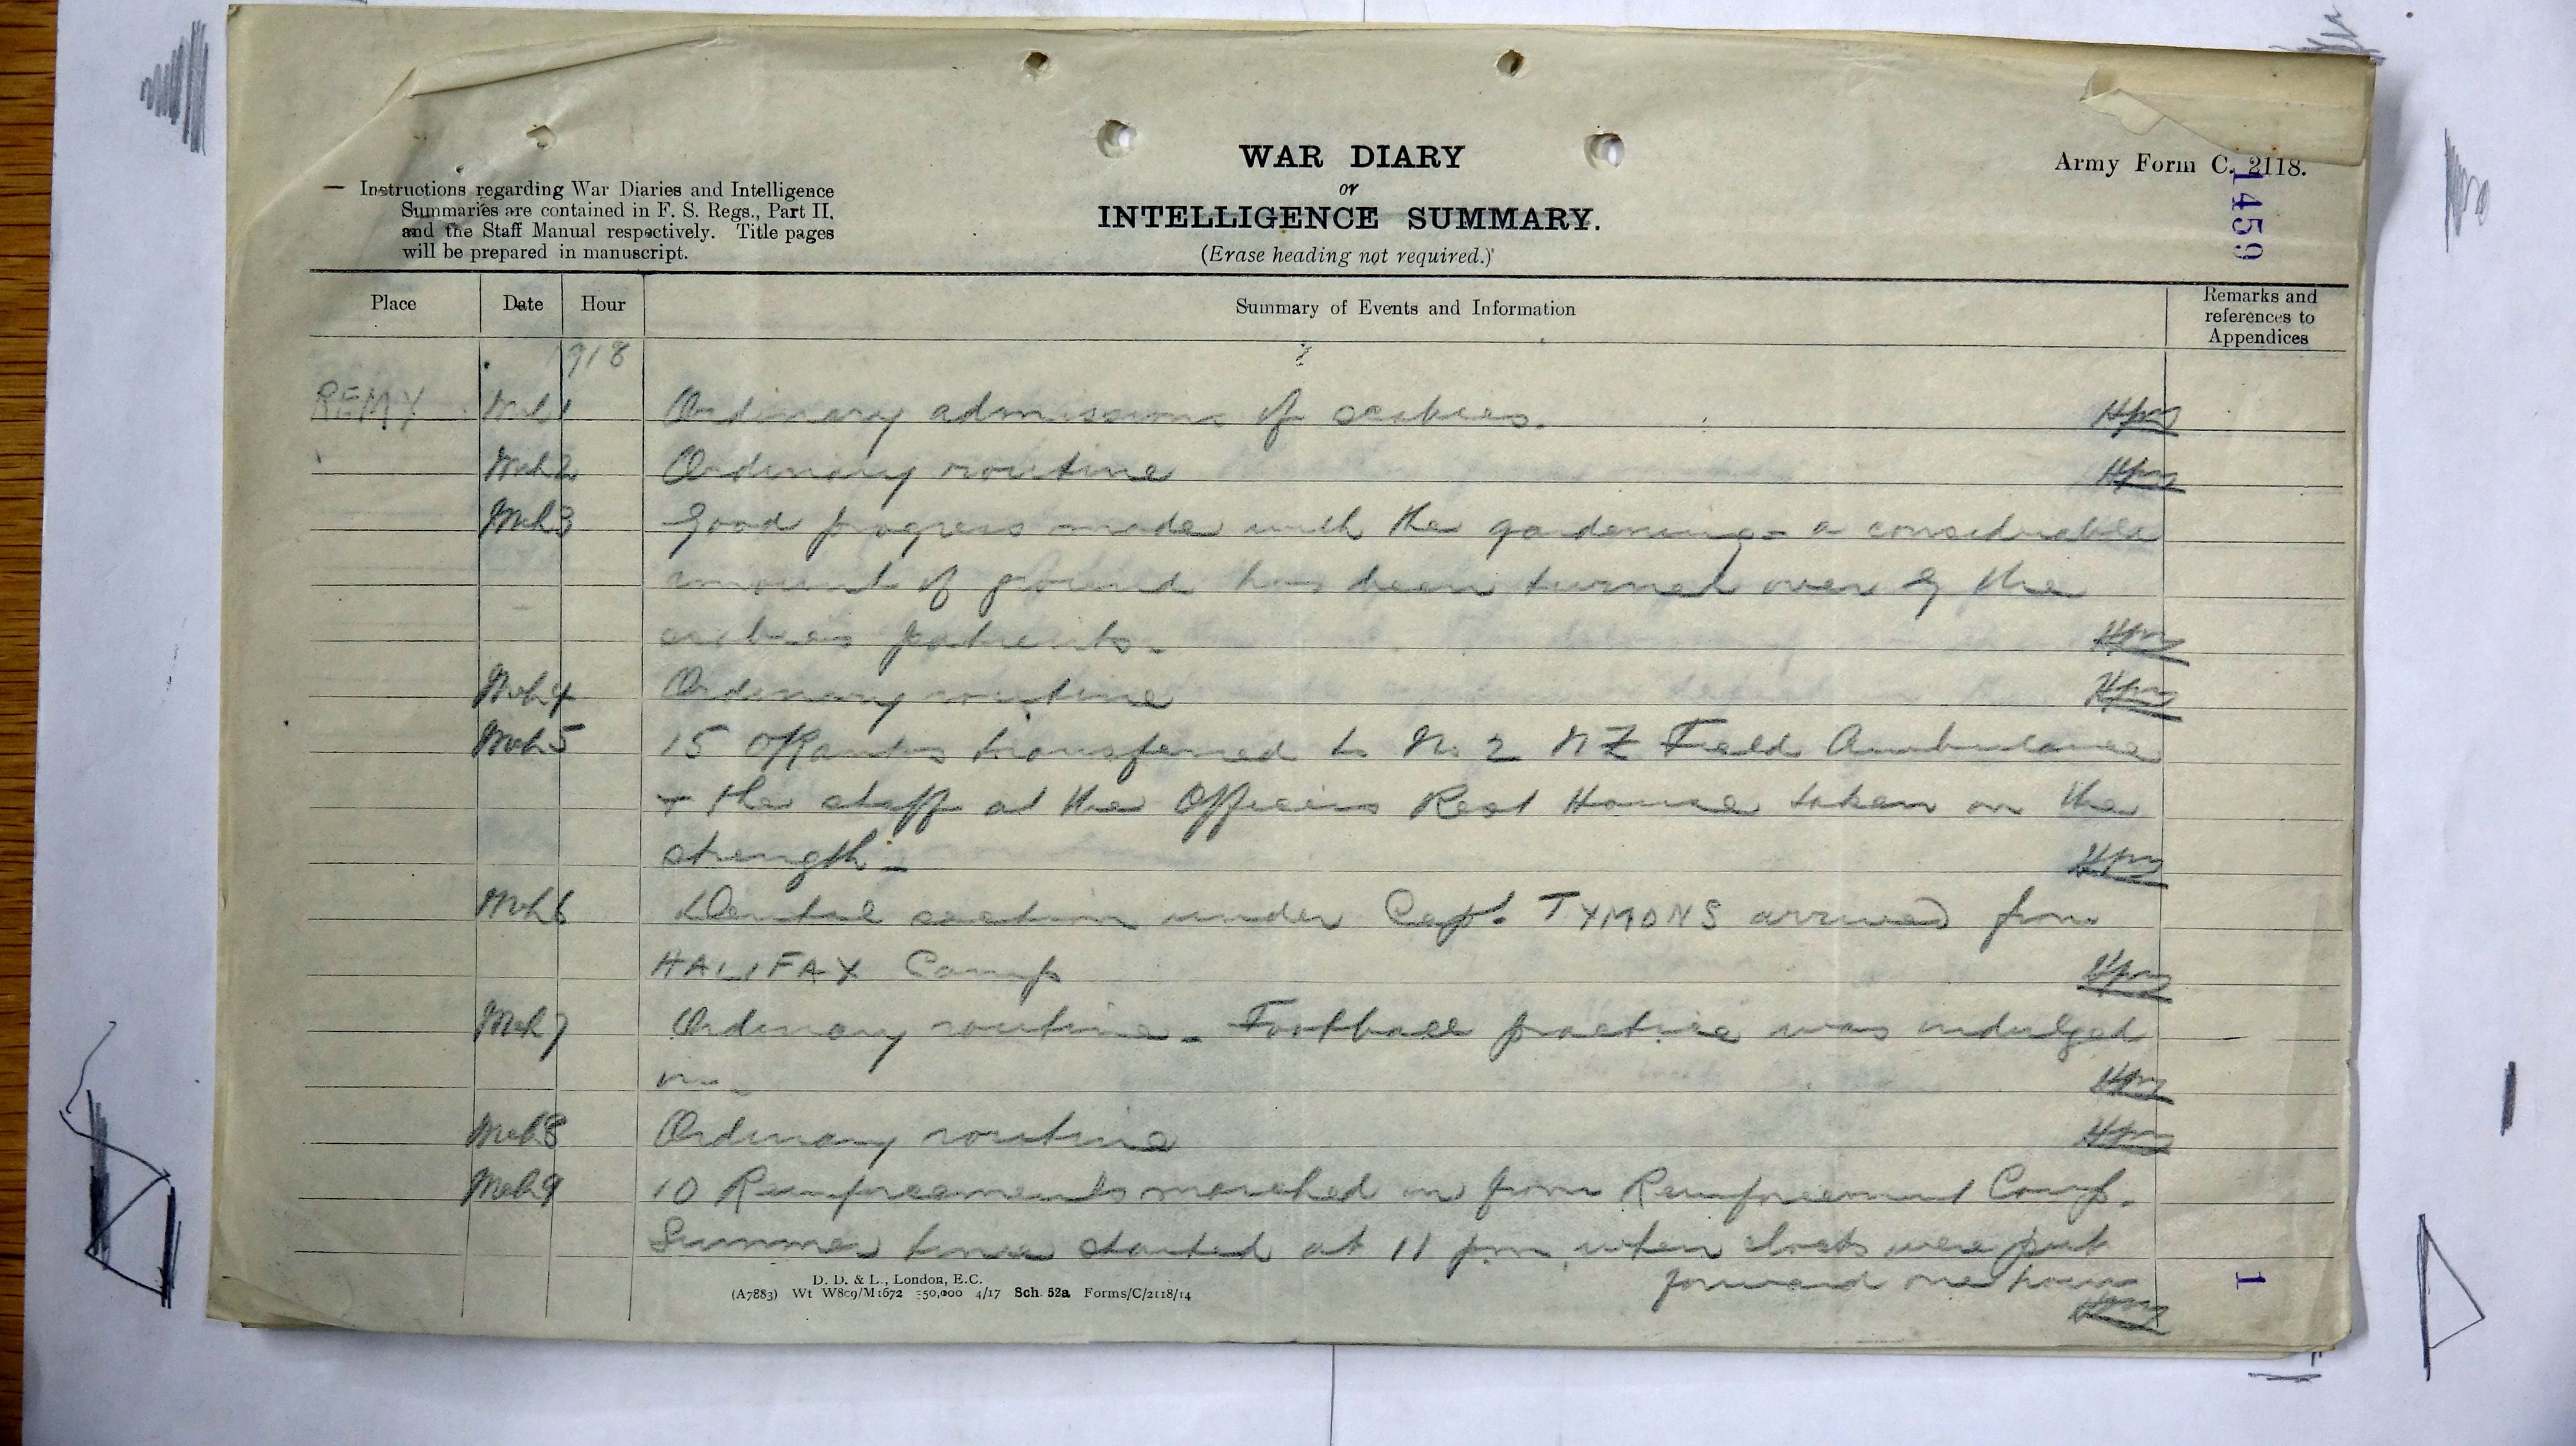 WAR DIARY
or
INTELLIGENCE SUMMARY.
(Erase heading not required.)
Army Form C. 2118.
1459
Instructions regarding War Diaries and Intelligence
Summaries are contained in F. S. Regs., Part II,
and the Staff Manual respectively. Title pages
will be prepared in manuscript.
Place Date Hour Summary of Events and Information Remarks and references to Appendices
1918
REMY Mch 1 Ordinary admissions of scabies.
Mch 2 Ordinary routine
Mch 3 Good progress made with the gardening - a considerable
amount of ground has been turned over by the
scabies patients.
Mch 4 Ordinary routine
Mch 5 15 ORanks transferred to No 2 NZ Field Ambulance
+ the staff at the Officers Rest House taken on the
strength -
Mch 6 Dental section under Capt. TYMONS arrived from
HALIFAX Camp
Mch 7 Ordinary routine - Football practice was indulged
in -
Mch 8 Ordinary routine
Mch 9 10 Reinforcements marched in from Reinforcement Camp.
Summer time started at 11 pm when clocks were put
forward one hour
D. D. & L., London, E.C.
(A7883) Wt W809/M1672 350,000 4/17 Sch. 52a Forms/C/2118/14
1